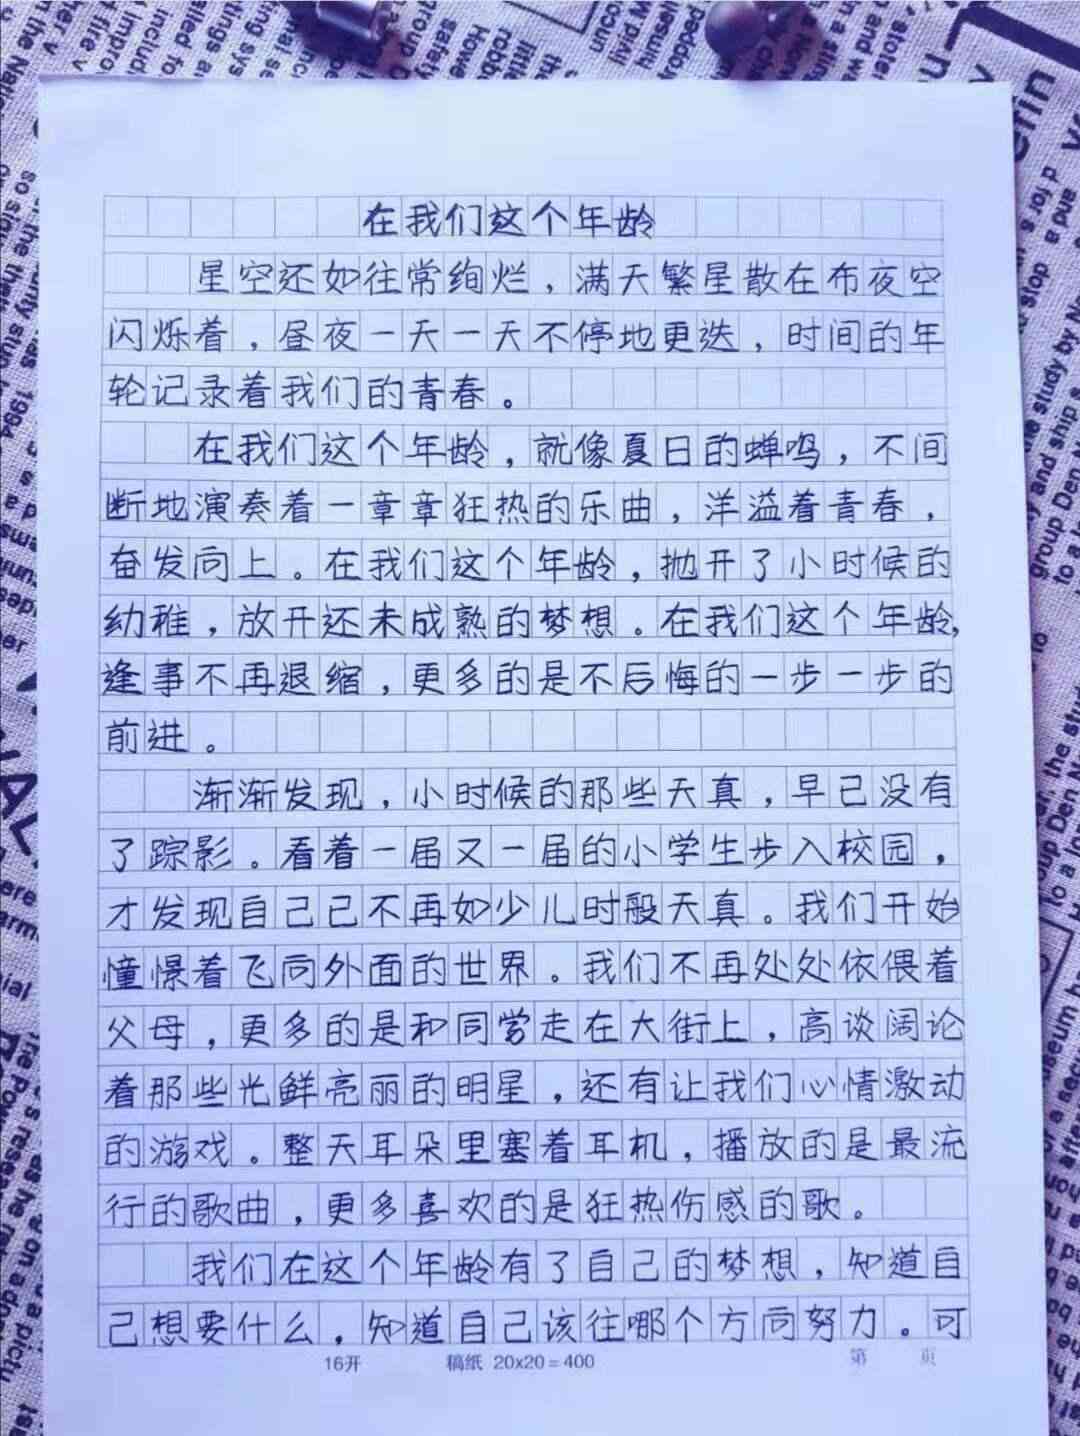 在我们这个年龄
星空还如往常绚烂，满天繁星散在布夜空
闪烁着，昼夜一天一天不停地更迭，时间的年
轮记录着我们的青春。
在我们这个年龄，就像夏日的蝉鸣，不间
断地演奏着一章章狂热的乐曲，洋溢着青春，
奋发向上。在我们这个年龄，抛开了小时候的
幼稚，放开还未成熟的梦想。在我们这个年龄，
逢事不再退缩，更多的是不后悔的一步一步的
前进。
渐渐发现，小时候的那些天真，早已没有
了踪影。看着一届又一届的小学生步入校园，
才发现自己已不再如少儿时般天真。我们开始
憧憬着飞向外面的世界。我们不再处处依偎着
父母，更多的是和同学走在大街上，高谈阔论
着那些光鲜亮丽的明星，还有让我们心情激动
的游戏。整天耳朵里塞着耳机，播放的是最流
行的歌曲，更多喜欢的是狂热伤感的歌。
我们在这个年龄有了自己的梦想，知道自
己想要什么，知道自己该往哪个方向努力。可
16开 稿纸 20x20=400 第 页